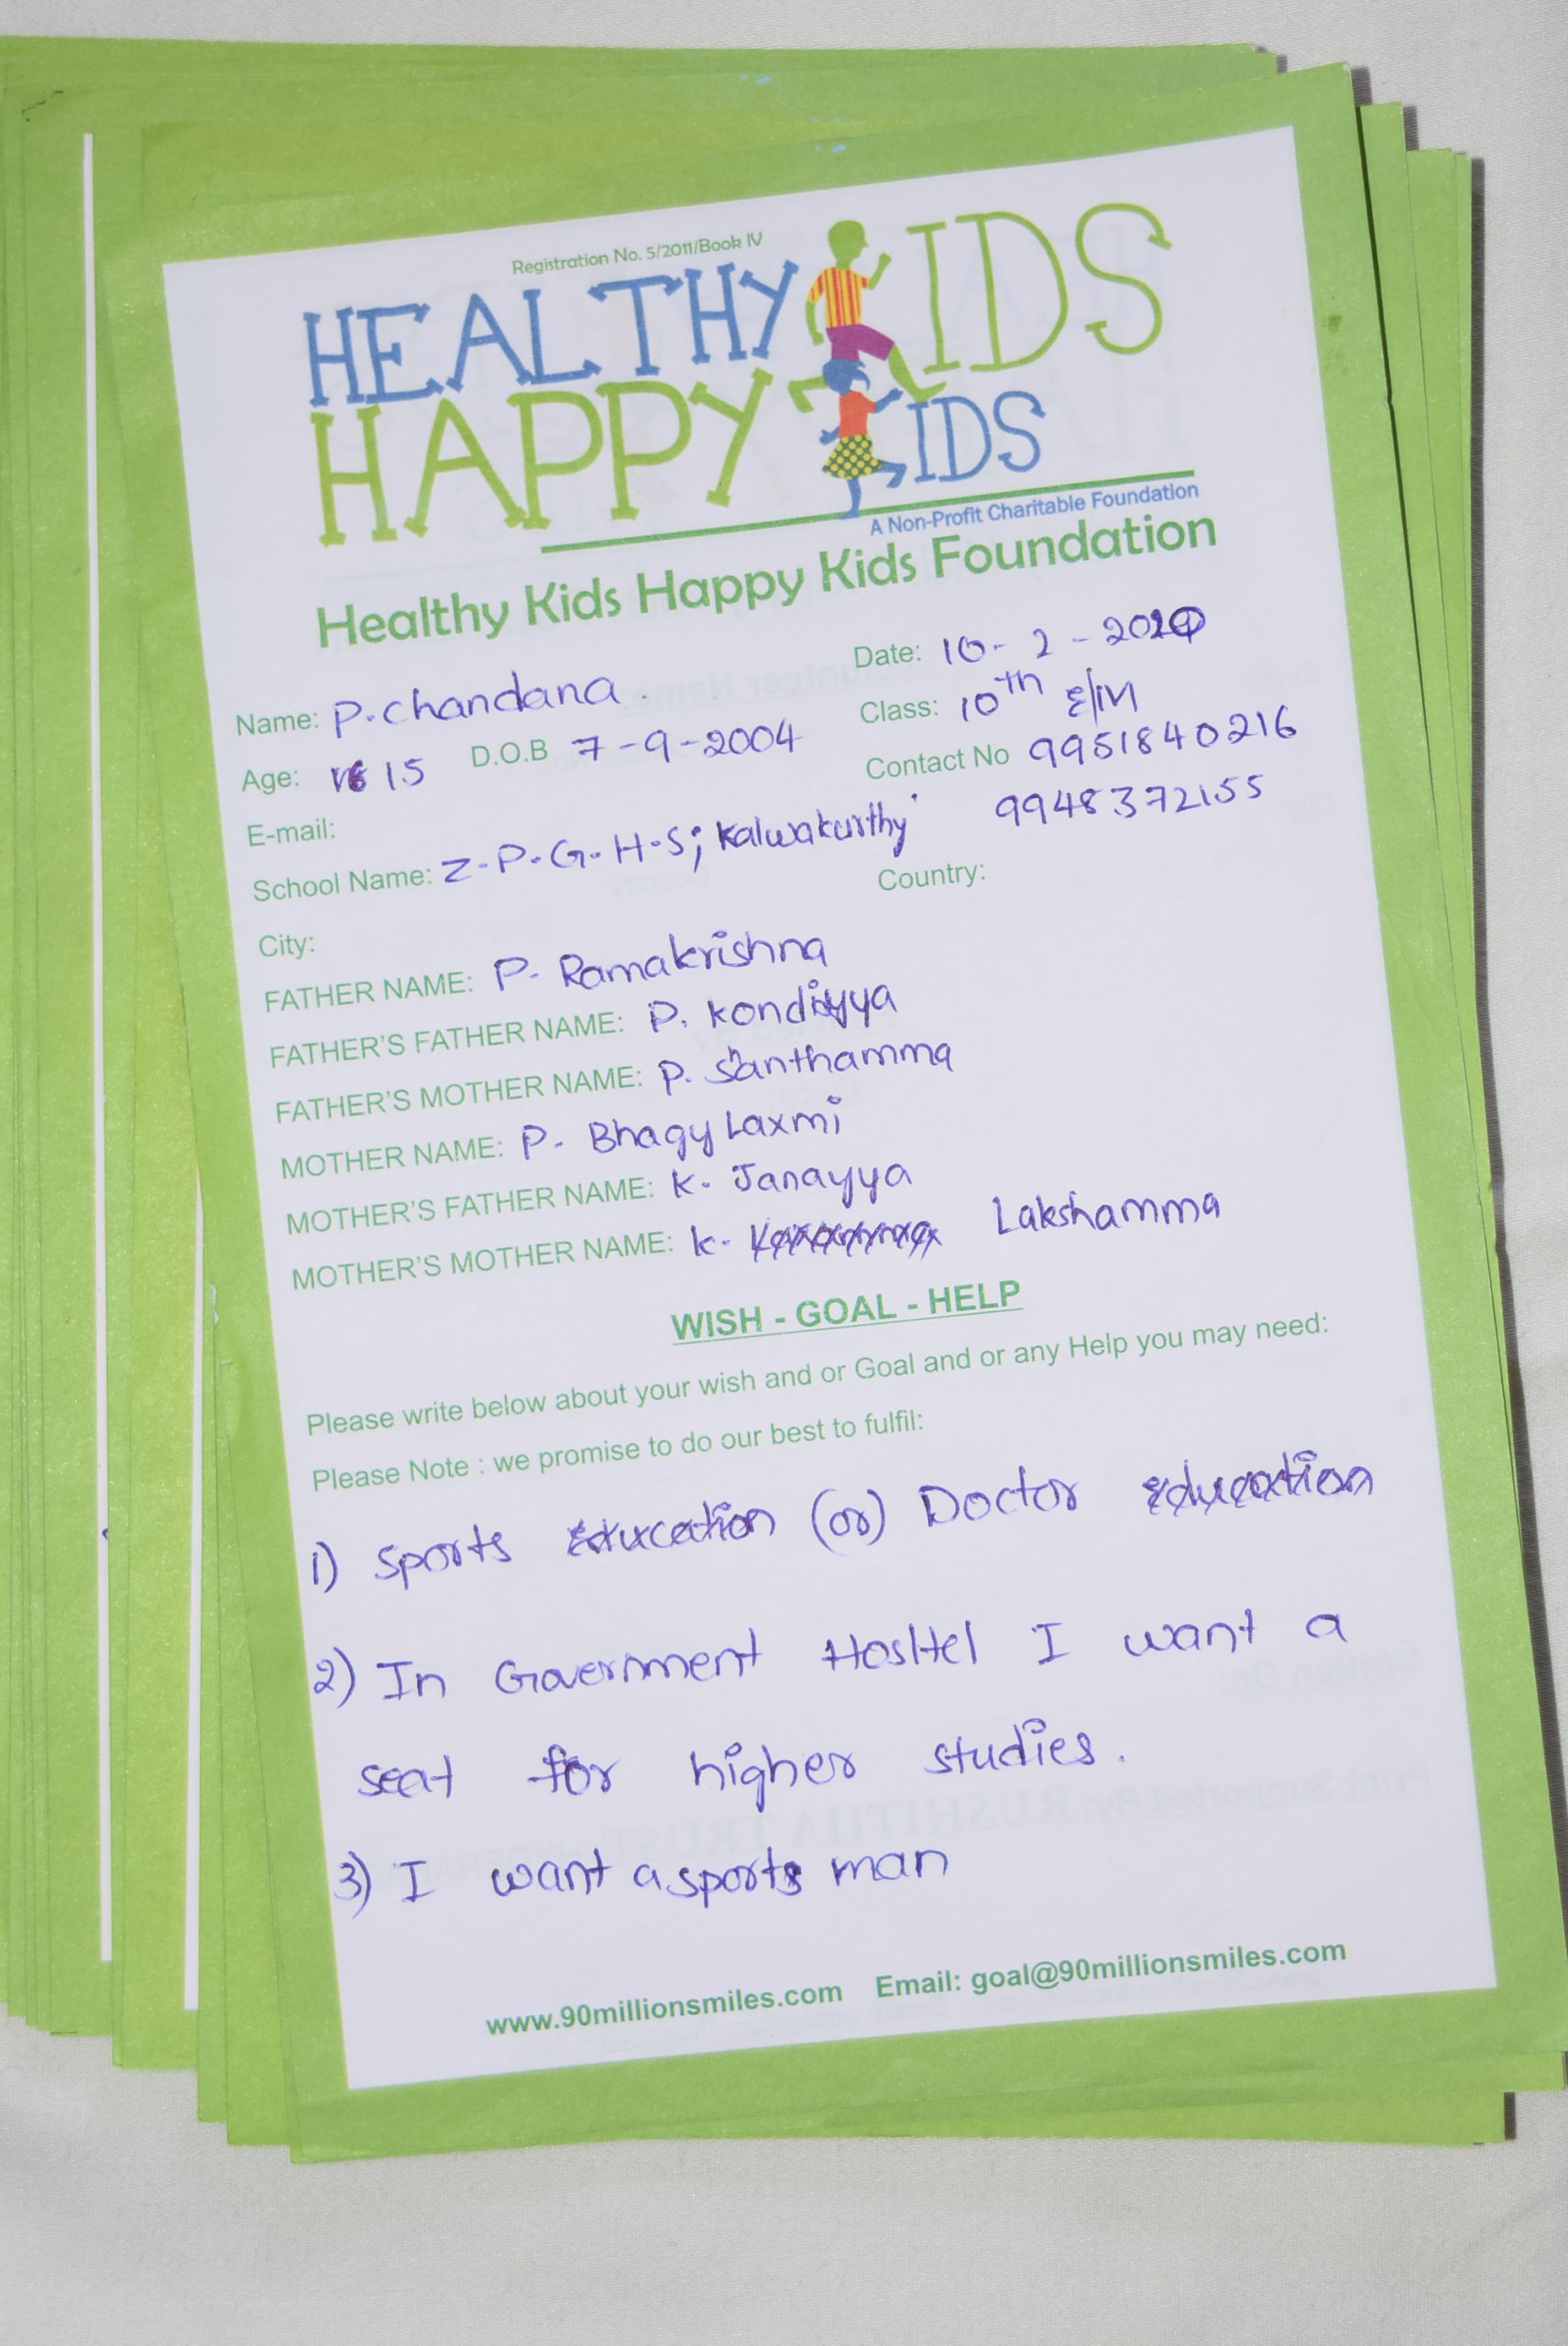 Registration No. 5/2011/Book IV
HEALTHY KIDS
HAPPY KIDS
A Non-Profit Charitable Foundation
Healthy Kids Happy Kids Foundation
Date: 10-2-2020
Name: P.chandana.
Class: 10th E/M
Age: 15 D.O.B 7-9-2004
Contact No 9951840216
E-mail:
9948372155
School Name: Z-P-G-H-S; Kalwakurthy
City:
Country:
FATHER NAME: P. Ramakrishna
FATHER'S FATHER NAME: P. Kondiyya
FATHER'S MOTHER NAME: P. Santhamma
MOTHER NAME: P. Bhagy Laxmi
MOTHER'S FATHER NAME: K. Janayya
MOTHER'S MOTHER NAME: K. Lakshamma
WISH - GOAL - HELP
Please write below about your wish and or Goal and or any Help you may need:
Please Note : we promise to do our best to fulfil:
1) Sports education (or) Doctor education
2) In Government Hosltel I want a
seat for higher studies.
3) I want a sports man
www.90millionsmiles.com Email: goal@90millionsmiles.com